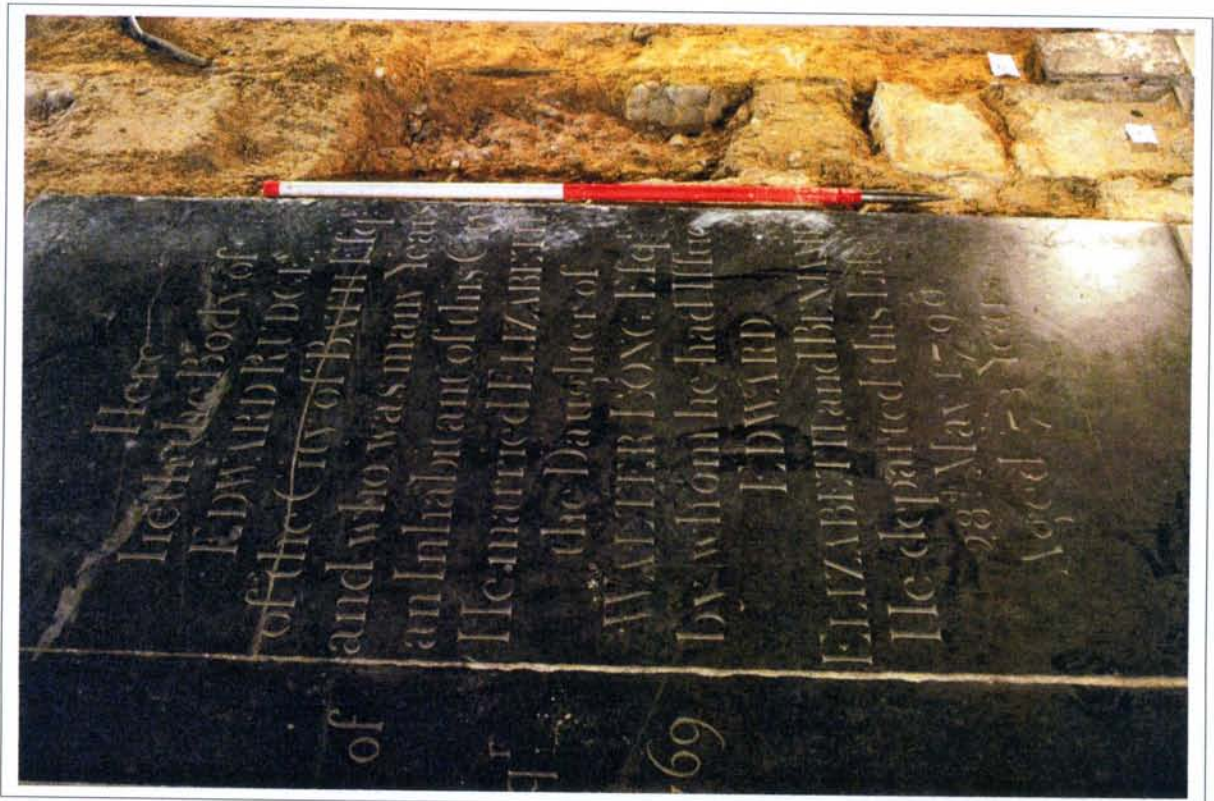 Here
lieth the Body of
EDWARD
of the City of BATH Esqr
and who was many Years
an Inhabitant of this
He married ELIZABETH
the Daughter of
WALTER LONG Esqr
by whom he had Issue
EDWARD
ELIZABETH and
He departed this Life
28th May
Aged 73 Years
of
69